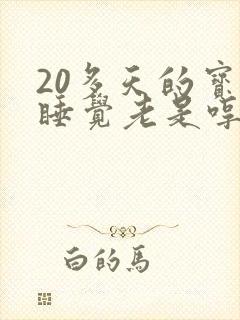 20多天的寶
睡覺老是哼
白的馬